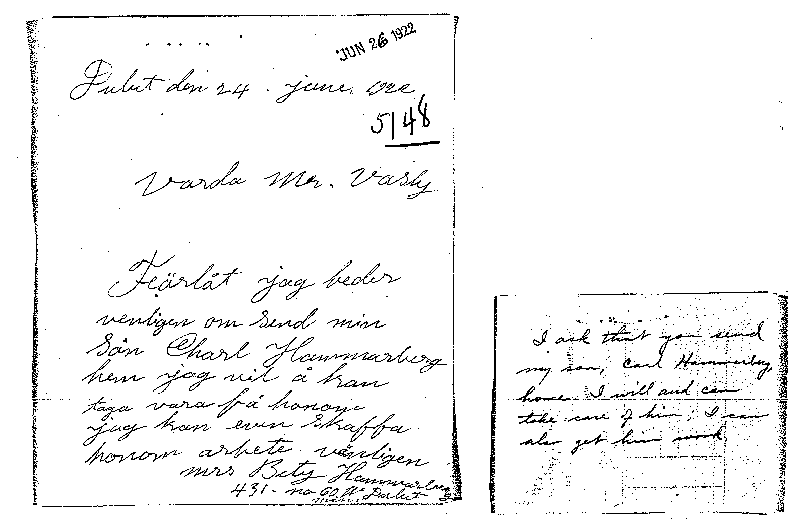 JUN 26 1922
den 24. june.
5148
Varda Mr. Vasly
Feärlåt jag beder
venligen om send min
sån Charl Hammarberg
hem jag vil å kan
taga vara på honom
jag kan even skaffa
honom arbete vänligen
mrs Bety Hammarberg
431 - no 60
I ask that you send
my son, Carl Hammerberg,
home. I will and can
take care of him. I can
also get him work